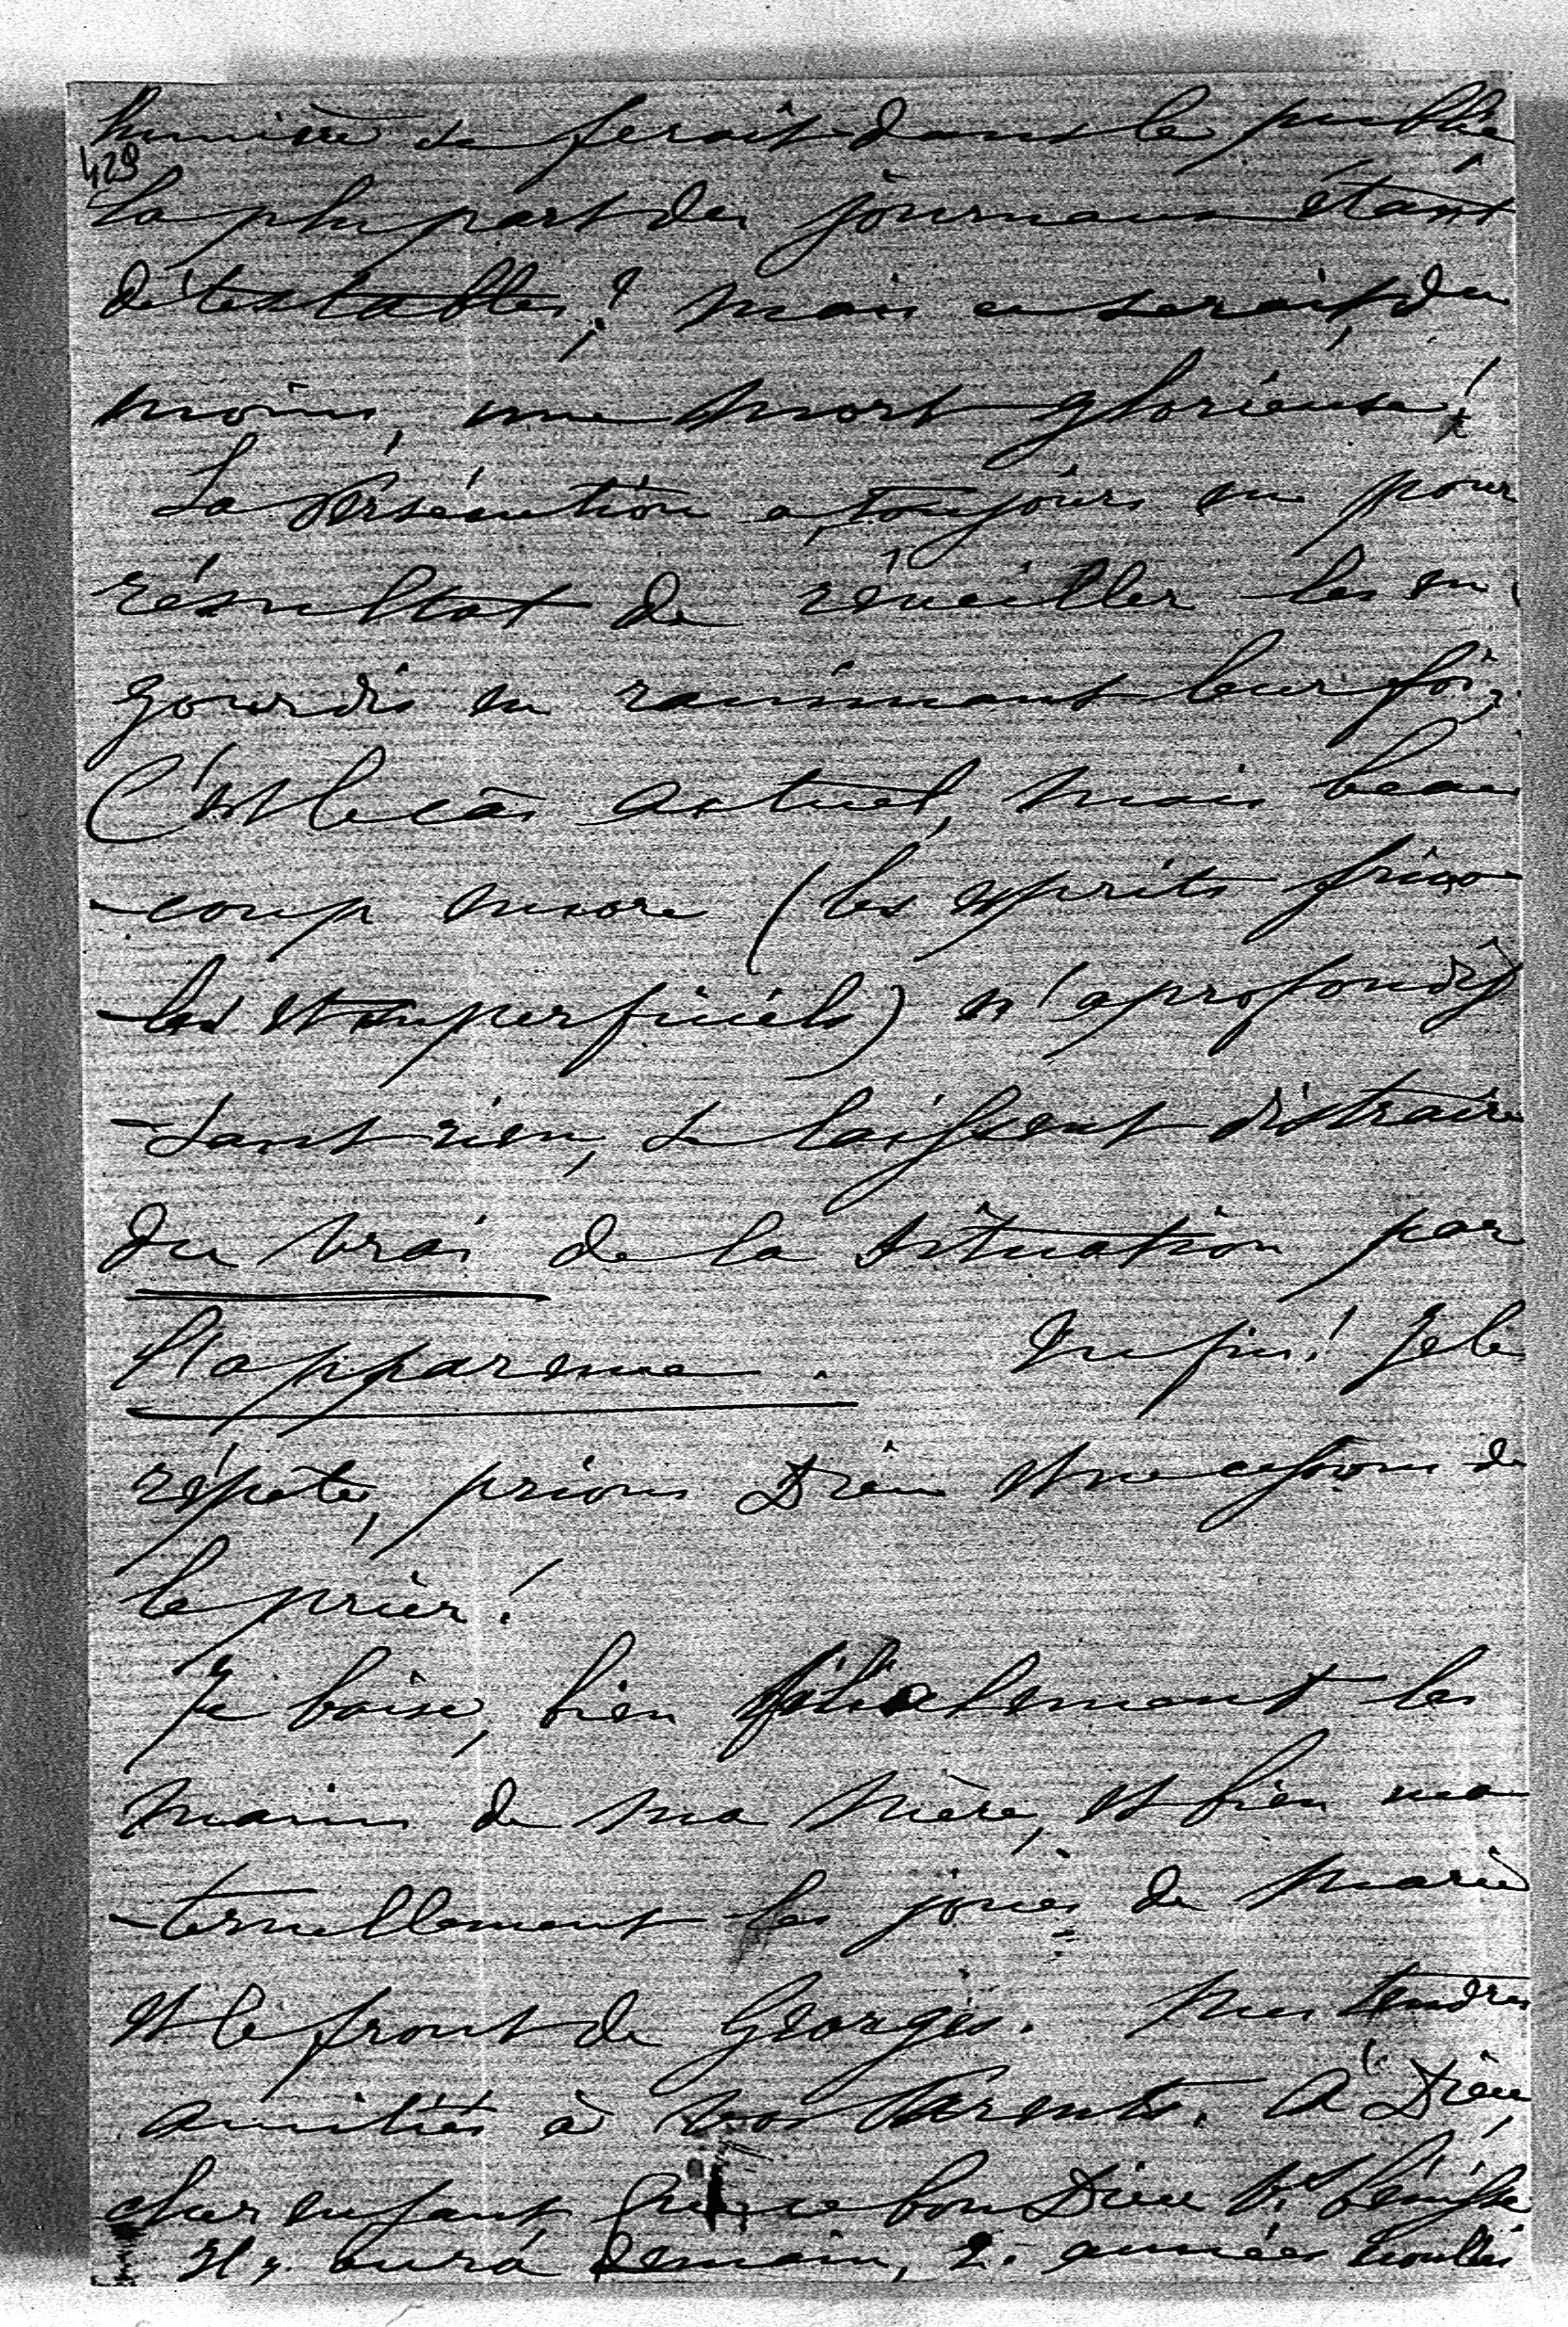 lumière se ferait dans le public
428
la plupart des journaux étant
détestables ! mais ce serait, du
moins, une mort glorieuse !
La Persécution a toujours eu pour
résultat de réveiller les en-
gourdis en ranimant leur foi ;
C'est le cas actuel, mais beau
-coup encore (les esprits frivo-
-les et superficiels) n'aprofondis
-sant rien, se laissent distraire
du vrai de la situation par
l'apparence. Enfin ! Je le
répète, prions Dieu et ne cessons de
le prier !
Je baise, bien filialement les
mains de ma Mère, et bien ma
-ternellement les joues de Marie
et le front de Georges. Mes tendres
amitiés à vos Parents. A Dieu
cher enfant Que le bon Dieu Vs bénisse
Il y aura demain, 2. années